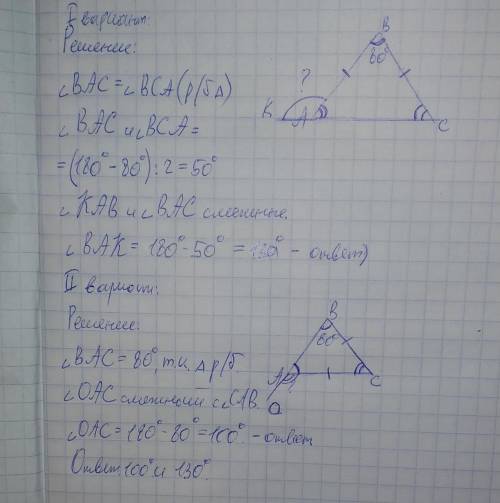 I вариант.
Решение:
∠BAC = ∠BCA (р/б Δ)
∠BAC и ∠BCA =
= (180° - 80°) : 2 = 50°
∠KAB и ∠BAC смежные.
∠BAK = 180° - 50° = 130° - ответ)
B
80°
?
K
A
C
II вариант:
Решение:
∠BAC = 80°, т.к. Δ р/б.
∠OAC смежный с ∠CAB.
∠OAC = 180° - 80° = 100° - ответ
Ответ: 100° и 130°.
B
80°
A
C
O